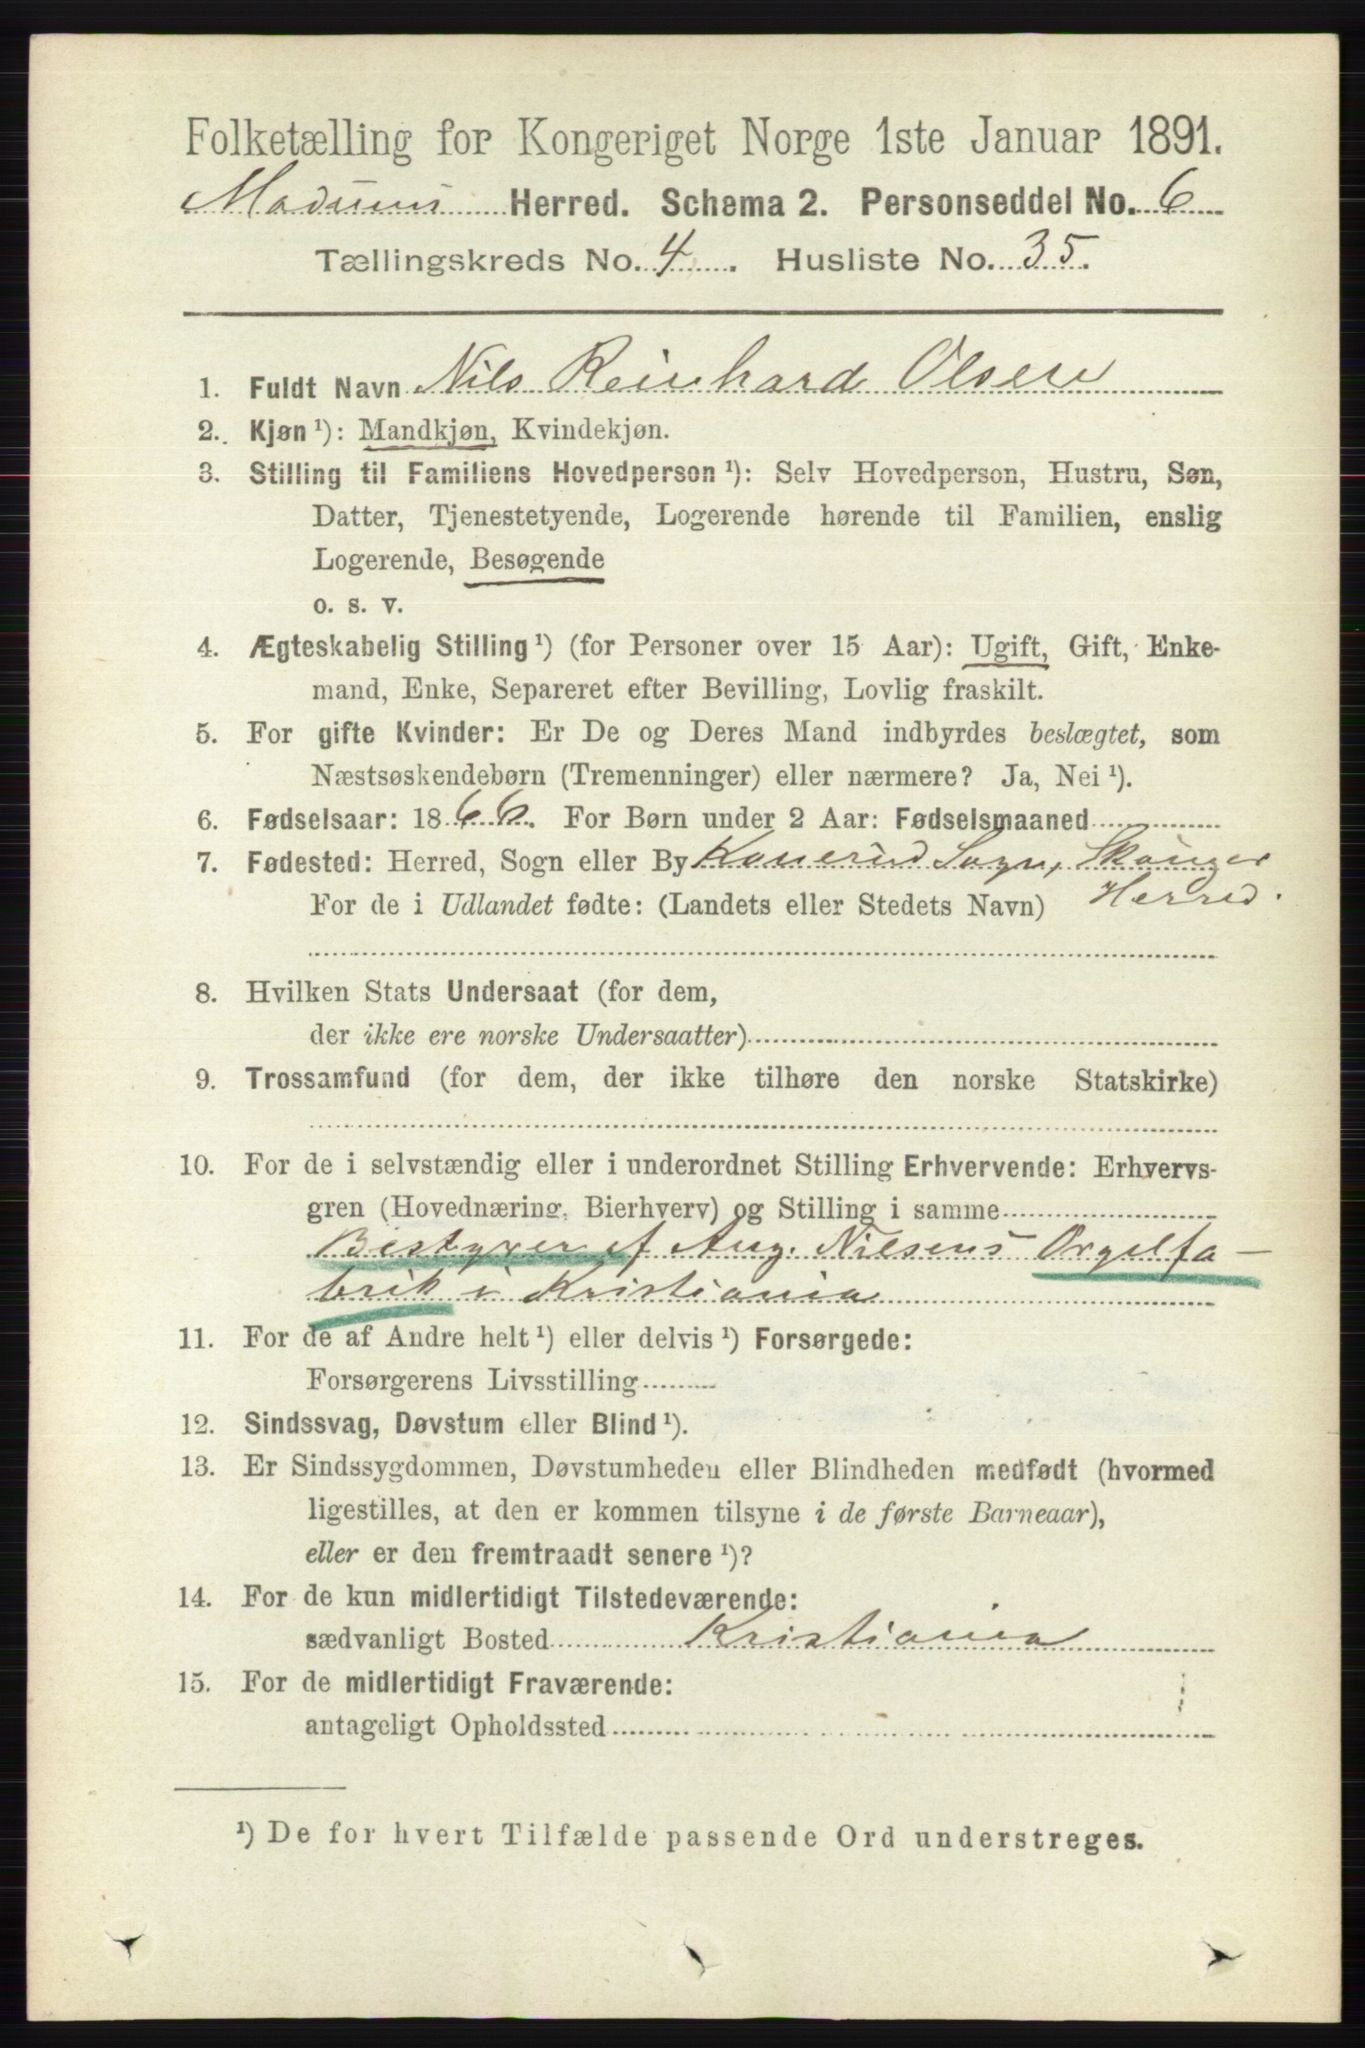 Folketælling for Kongeriget Norge 1ste Januar 1891.
Modums Herred. Schema 2. Personseddel No. 6
Tællingskreds No. 4. Husliste No. 35.
1. Fuldt Navn Nils Reinhard Olsen
2. Kjøn ¹): Mandkjøn, Kvindekjøn.
3. Stilling til Familiens Hovedperson ¹): Selv Hovedperson, Hustru, Søn,
Datter, Tjenestetyende, Logerende hørende til Familien, enslig
Logerende, Besøgende
o. s. v.
4. Ægteskabelig Stilling ¹) (for Personer over 15 Aar): Ugift, Gift, Enke-
mand, Enke, Separeret efter Bevilling, Lovlig fraskilt.
5. For gifte Kvinder: Er De og Deres Mand indbyrdes beslægtet, som
Næstsøskendebørn (Tremenninger) eller nærmere? Ja, Nei ¹).
6. Fødselsaar: 1866. For Børn under 2 Aar: Fødselsmaaned
7. Fødested: Herred, Sogn eller By Konerud Sogn, Skouger
For de i Udlandet fødte: (Landets eller Stedets Navn) Herred.
8. Hvilken Stats Undersaat (for dem,
der ikke ere norske Undersaatter)
9. Trossamfund (for dem, der ikke tilhøre den norske Statskirke)
10. For de i selvstændig eller i underordnet Stilling Erhvervende: Erhvervs-
gren (Hovednæring, Bierhverv) og Stilling i samme
Bestyrer af Aug. Nilsens Orgelfa-
brik i Kristiania
11. For de af Andre helt ¹) eller delvis ¹) Forsørgede:
Forsørgerens Livsstilling
12. Sindssvag, Døvstum eller Blind ¹).
13. Er Sindssygdommen, Døvstumheden eller Blindheden medfødt (hvormed
ligestilles, at den er kommen tilsyne i de første Barneaar),
eller er den fremtraadt senere ¹)?
14. For de kun midlertidigt Tilstedeværende:
sædvanligt Bosted Kristiania
15. For de midlertidigt Fraværende:
antageligt Opholdssted
¹) De for hvert Tilfælde passende Ord understreges.